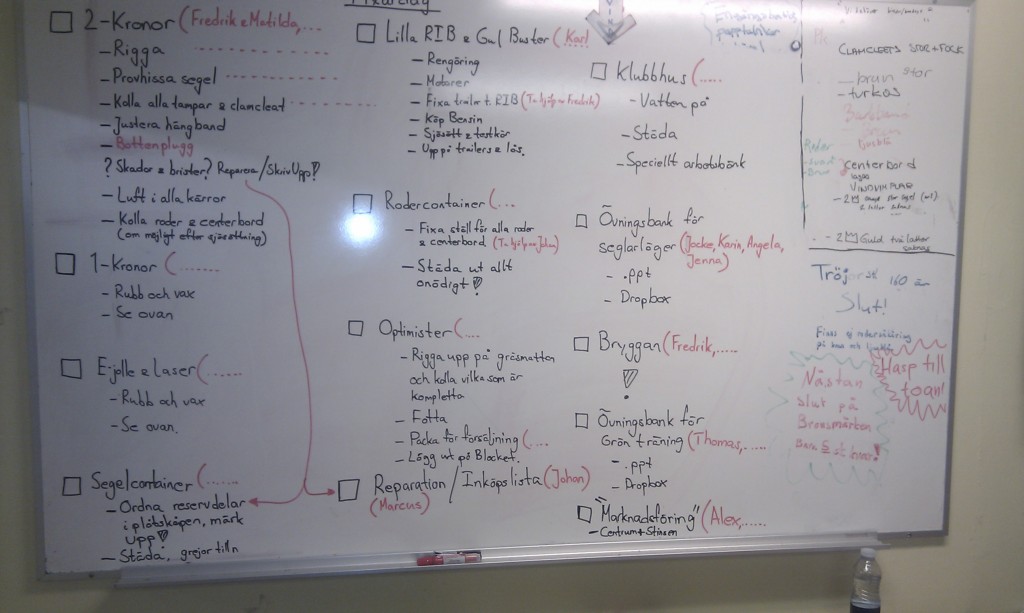 2-Kronor (Fredrik & Matilda,...
- Rigga
- Provhissa segel
- Kolla alla tampar & clamcleat
- Justera hängband
- Bottenplugg
? Skador & brister? Reparera/Skriv Upp!
- Luft i alla kärror
- Kolla roder & centerbord
(om möjligt efter sjösättning)
1-Kronor (.......
- Rubb och vax
- Se ovan
E-jolle & laser (......
- Rubb och vax
- Se ovan.
Segelcontainer (......
- Ordna reservdelar
i plåtskåpen, märk
upp!
- Städa, grejor till
Lilla RIB & Gul Buster (Karl
- Rengöring
- Motorer
- Fixa trailer t. RIB (Ta hjälp av Fredrik)
- Köp Bensin
- Sjösätt & testkör
- Upp på trailers & lås.
Rodercontainer (...
- Fixa ställ för alla roder
& centerbord (Ta hjälp av Johan)
- Städa ut allt
onödigt!
Optimister (....
- Rigga upp på gräsmattan
och kolla vilka som är
kompletta
- Fotta
- Packa för försäljning (....
- Lägg ut på Blocket.
Reparation/Inköpslista (Johan)
(Marcus)
Klubbhus (.....
- Vatten på
- Städa
- Speciellt arbetsbänk
Övningsbank för
seglarläger (Jocke, Karin, Angela,
Jenna)
- .ppt
- Dropbox
Bryggan (Fredrik,.....
!
Övningsbank för
Grön träning (Thomas,.....
- .ppt
- Dropbox
"Marknadsföring" (Alex,.....
- Centrum + Stinsen
CLAMCLEETS STOR + FOCK
stor
- turkos
centerbord
VINDVIMPLAR
Guld
Tröjor st 160 är
Slut!
Hasp till
toan!
Nästan
slut på
Bronsmärken
Bara 5 st kvar!